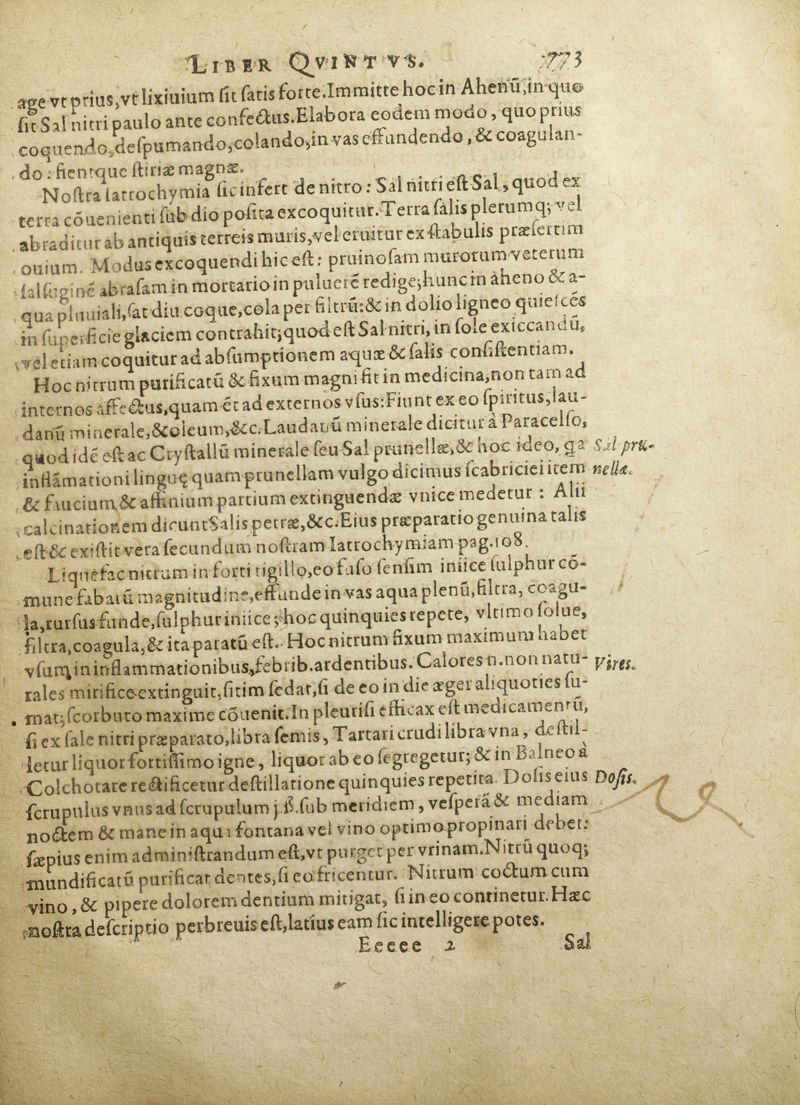 LIBER QVINTVS. 773
age vt prius, vt lixiuium sit satis forte. Immitte hoc in Ahenũ, in quo
sit Sal nitri paulo ante confectus. Elabora eodem modo, quo prius
coquendo, despumando, colando, in vas effundendo, & coagulan-
do: fientque stiriæ magnæ.
Nostra Iatrochymia sic infert de nitro: Sal nitri est Sal, quod ex
terra cõuenienti sub dio posita excoquitur. Terra salis plerumq; vel
abraditur ab antiquis terreis muris, vel eruitur ex stabulis præsertim
ouium. Modus excoquendi hic est: pruinosam murorum veterum
salsuginé abrasam in mortario in puluerẽ redige; hunc in aheno & a-
qua pluuiali, sat diu coque, cola per filtrũ: & in dolio ligneo quiescẽs
in superficie glaciem contrahit; quod est Sal nitri, in sole exiccandũ,
vel etiam coquitur ad absumptionem aquæ & salis consistentiam.
Hoc nitrum purificatũ & fixum magni fit in medicina, non tam ad
internos affectus, quam ét ad externos vsus: Fiunt ex eo spiritus, lau-
danũ minerale, & oleum, &c. Laudanũ minerale dicitur à Paracelso,
quod idé est ac Crystallũ minerale seu Sal prunellæ, & hoc ideo, qa Sal pru-
inflãmationi linguę quam prunellam vulgo dicimus scabriciei item nellæ.
& faucium, & affinium partium extinguendæ vnice medetur: Alii
calcinationem dicunt Salis petræ, &c. Eius præparatio genuina talis
est & existit vera secundum nostram Iatrochymiam pag. 108.
Liquefac nitrum in forti tigillo, eo fuso sensim iniice sulphur cõ-
mune fabarũ magnitudine, effunde in vas aqua plenũ, filtra, coagu-
la, rursus funde, sulphur iniice; hoc quinquies repete, vltimo solue,
filtra, coagula, & ita paratũ est. Hoc nitrum fixum maximum habet
vsum in inflammationibus, febrib. ardentibus. Calores n. non natu- Vires.
rales mirifice extinguit, sitim sedat, si de eo in die æger aliquoties su-
mat; scorbuto maxime cõuenit. In pleurisi efficax est medicamentũ,
si ex sale nitri præparato, libra semis, Tartari crudi libra vna, destil-
letur liquor fortissimo igne, liquor ab eo segregetur; & in Balneo à
Colchotare rectificetur destillatione quinquies repetita. Dosis eius Dosis.
scrupulus vnus ad scrupulum j ß. sub meridiem, vesperã & mediam
noctem & mane in aqua fontana vel vino optimo propinari debet:
sæpius enim administrandum est, vt purget per vrinam. Nitrũ quoq;
mundificatũ purificat dentes, si eo fricentur. Nitrum coctum cum
vino, & pipere dolorem dentium mitigat, si in eo continetur. Hæc
nostra descriptio perbreuis est, latius eam sic intelligere potes.
Eeeee 2 Sal